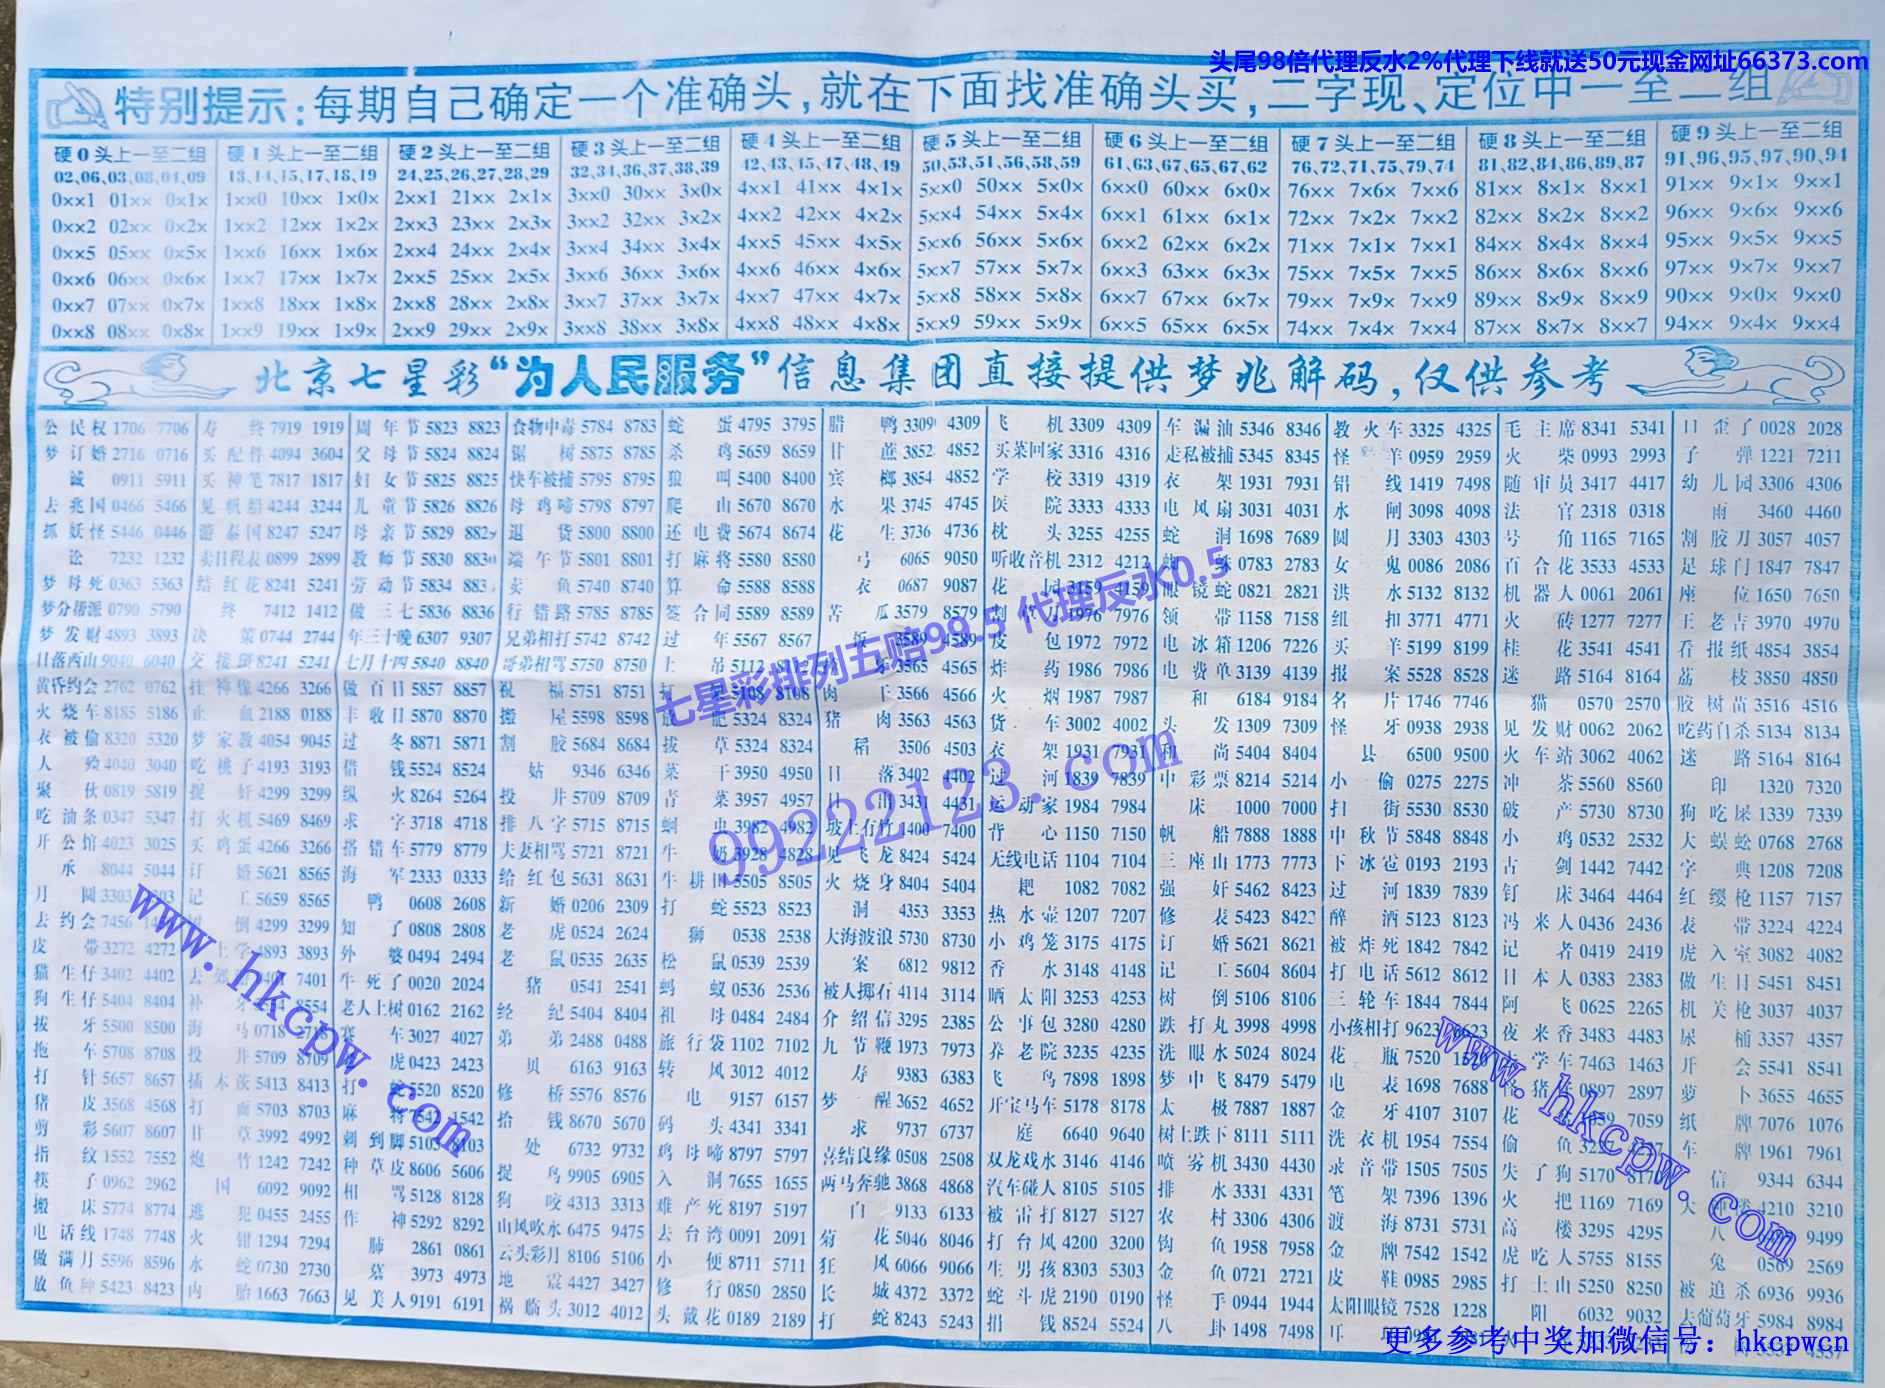 头尾98倍代理反水2%代理下线就送50元现金网址66373.com
特别提示:每期自己确定一个准确头,就在下面找准确头买,二字现、定位中一至二组
硬0头上一至二组
02,06,03,08,04,09
0××1 01×× 0×1×
0××2 02×× 0×2×
0××5 05×× 0×5×
0××6 06×× 0×6×
0××7 07×× 0×7×
0××8 08×× 0×8×
硬1头上一至二组
13,14,15,17,18,19
1××0 10×× 1×0×
1××2 12×× 1×2×
1××6 16×× 1×6×
1××7 17×× 1×7×
1××8 18×× 1×8×
1××9 19×× 1×9×
硬2头上一至二组
24,25,26,27,28,29
2××1 21×× 2×1×
2××3 23×× 2×3×
2××4 24×× 2×4×
2××5 25×× 2×5×
2××8 28×× 2×8×
2××9 29×× 2×9×
硬3头上一至二组
32,34,36,37,38,39
3××0 30×× 3×0×
3××2 32×× 3×2×
3××4 34×× 3×4×
3××6 36×× 3×6×
3××7 37×× 3×7×
3××8 38×× 3×8×
硬4头上一至二组
42,43,45,47,48,49
4××1 41×× 4×1×
4××2 42×× 4×2×
4××5 45×× 4×5×
4××6 46×× 4×6×
4××7 47×× 4×7×
4××8 48×× 4×8×
硬5头上一至二组
50,53,51,56,58,59
5××0 50×× 5×0×
5××4 54×× 5×4×
5××6 56×× 5×6×
5××7 57×× 5×7×
5××8 58×× 5×8×
5××9 59×× 5×9×
硬6头上一至二组
61,63,67,65,67,62
6××0 60×× 6×0×
6××1 61×× 6×1×
6××2 62×× 6×2×
6××3 63×× 6×3×
6××7 67×× 6×7×
6××5 65×× 6×5×
硬7头上一至二组
76,72,71,75,79,74
76×× 7×6× 7××6
72×× 7×2× 7××2
71×× 7×1× 7××1
75×× 7×5× 7××5
79×× 7×9× 7××9
74×× 7×4× 7××4
硬8头上一至二组
81,82,84,86,89,87
81×× 8×1× 8××1
82×× 8×2× 8××2
84×× 8×4× 8××4
86×× 8×6× 8××6
89×× 8×9× 8××9
87×× 8×7× 8××7
硬9头上一至二组
91,96,95,97,90,94
91×× 9×1× 9××1
96×× 9×6× 9××6
95×× 9×5× 9××5
97×× 9×7× 9××7
90×× 9×0× 9××0
94×× 9×4× 9××4
北京七星彩“为人民服务”信息集团直接提供梦兆解码,仅供参考
公民权 1706 7706
梦订婚 2716 0716
诚 0911 5911
去兆国 0466 5466
抓妖怪 5446 0446
讼 7232 1232
梦母死 0363 5363
梦分帮派 0790 5790
梦发财 4893 3893
日落西山 9040 6040
黄昏约会 2762 0762
火烧车 8185 5186
衣被偷 8320 5320
人殓 4040 3040
聚伙 0819 5819
吃油条 0347 5347
开公馆 4023 3025
承 8044 5044
月圆 3303
去约会 7456
皮带 3272 4272
猫生仔 3402 4402
狗生仔 5404 8404
拔牙 5500 8500
拖车 5708 8708
打针 5657 8657
猪皮 3568 4568
剪彩 5607 8607
指纹 1552 7552
筷子 0962 2962
搬床 5774 8774
电话线 1748 7748
做满月 5596 8596
放鱼种 5423 8423
寿终 7919 1919
买配件 4094 3604
买神笔 7817 1817
见帆船 4244 3244
游泰国 8247 5247
卖日程表 0899 2899
结红花 8241 5241
终 7412 1412
决策 0744 2744
交接 8241 5241
挂神像 4266 3266
止血 2188 0188
梦家教 4054 9045
吃桃子 4193 3193
捉奸 4299 3299
打火机 5469 8469
买鸡蛋 4266 3266
订婚 5621 8565
记工 5659 8565
倒 4299 3299
上学 4893 3893
7401
补牙 8554
海马 0718
投井 5709 8709
插木茨 5413 8413
打雨 5703 8703
甘草 3992 4992
炮竹 1242 7242
国 6092 9092
逃犯 0455 2455
火钳 1294 7294
水蛇 0730 2730
内胎 1663 7663
周年节 5823 8823
父母节 5824 8824
妇女节 5825 8825
儿童节 5826 8826
母亲节 5829 8829
教师节 5830 8830
劳动节 5834 883
做三七 5836 8836
年三十晚 6307 9307
七月十四 5840 8840
做百日 5857 8857
丰收日 5870 8870
过冬 8871 5871
借钱 5524 8524
纵火 8264 5264
求字 3718 4718
搭错车 5779 8779
海军 2333 0333
鸭 0608 2608
知了 0808 2808
外婆 0494 2494
牛死了 0020 2024
老人上树 0162 2162
赛车 3027 4027
虎 0423 2423
打蛇 5520 8520
麻将 1542
刺到脚 5103 8103
种草皮 8606 5606
相骂 5128 8128
作神 5292 8292
肺 2861 0861
墓 3973 4973
见美人 9191 6191
食物中毒 5784 8783
锯树 5875 8785
快车被捕 5795 8795
母鸡啼 5798 8797
退货 5800 8800
端午节 5801 8801
卖鱼 5740 8740
行错路 5785 8785
兄弟相打 5742 8742
哥弟相骂 5750 8750
祝福 5751 8751
搬屋 5598 8598
割胶 5684 8684
姑 9346 6346
投井 5709 8709
排八字 5715 8715
夫妻相骂 5721 8721
给红包 5631 8631
新婚 0206 2309
老虎 0524 2624
老鼠 0535 2635
猪 0541 2541
经纪 5404 8404
弟弟 2488 0488
贝 6163 9163
修桥 5576 8576
拾钱 8670 5670
处 6732 9732
捉鸟 9905 6905
狗咬 4313 3313
山风吹水 6475 9475
云头彩月 8106 5106
地震 4427 3427
祸临头 3012 4012
蛇蛋 4795 3795
杀鸡 5659 8659
狼叫 5400 8400
爬山 5670 8670
还电费 5674 8674
打麻将 5580 8580
算命 5588 8588
签合同 5589 8589
过年 5567 8567
上吊 5112 8112
5108 8108
配 5324 8324
拔草 5324 8324
菜干 3950 4950
青菜 3957 4957
蛔虫 3982 4982
牛奶 3928 4828
牛耕田 5505 8505
打蛇 5523 8523
狮 0538 2538
松鼠 0539 2539
蚂蚁 0536 2536
祖母 0484 2484
旅行袋 1102 7102
转风 3012 4012
电 9157 6157
码头 4341 3341
鸡母啼 8797 5797
入洞 7655 1655
难产死 8197 5197
去台湾 0091 2091
小便 8711 5711
修行 0850 2850
头戴花 0189 2189
腊鸭 3309 4309
甘蔗 3852 4852
宾榔 3854 4852
水果 3745 4745
花生 3736 4736
弓 6065 9050
衣 0687 9087
苦瓜 3579 8579
饭 3589 4589
3565 4565
肉干 3566 4566
猪肉 3563 4563
稻 3506 4503
日落 3402 4402
日出 3431 4431
坡上有竹 1400 7400
见飞龙 8424 5424
火烧身 8404 5404
洞 4353 3353
大海波浪 5730 8730
案 6812 9812
被人掷石 4114 3114
介绍信 3295 2385
九节鞭 1973 7973
寿 9383 6383
梦醒 3652 4652
求 9737 6737
喜结良缘 0508 2508
两马奔驰 3868 4868
白 9133 6133
菊花 5046 8046
狂风 6066 9066
长城 4372 3372
打蛇 8243 5243
飞机 3309 4309
买菜回家 3316 4316
学校 3319 4319
医院 3333 4333
枕头 3255 4255
听收音机 2312 4212
花园 3159 4159
1976 7976
皮包 1972 7972
炸药 1986 7986
火烟 1987 7987
货车 3002 4002
衣架 1931 7931
过河 1839 7839
运动家 1984 7984
背心 1150 7150
无线电话 1104 7104
耙 1082 7082
热水壶 1207 7207
小鸡笼 3175 4175
香水 3148 4148
晒太阳 3253 4253
公事包 3280 4280
养老院 3235 4235
飞鸟 7898 1898
开宝马车 5178 8178
庭 6640 9640
双龙戏水 3146 4146
汽车碰人 8105 5105
被雷打 8127 5127
打台风 4200 3200
生男孩 8303 5303
蛇斗虎 2190 0190
捐钱 8524 5524
车漏油 5346 8346
走私被捕 5345 8345
衣架 1931 7931
电风扇 3031 4031
蛇洞 1698 7689
蜘蛛 0783 2783
眼镜蛇 0821 2821
领带 1158 7158
电冰箱 1206 7226
电费单 3139 4139
和 6184 9184
头发 1309 7309
和尚 5404 8404
中彩票 8214 5214
床 1000 7000
帆船 7888 1888
三座山 1773 7773
强奸 5462 8423
修表 5423 8422
订婚 5621 8621
记工 5604 8604
树倒 5106 8106
跌打丸 3998 4998
洗眼水 5024 8024
梦中飞 8479 5479
太极 7887 1887
树上跌下 8111 5111
喷雾机 3430 4430
排水 3331 4331
农村 3306 4306
钩鱼 1958 7958
金鱼 0721 2721
怪手 0944 1944
八卦 1498 7498
教火车 3325 4325
怪羊 0959 2959
铝线 1419 7498
水闸 3098 4098
圆月 3303 4303
女鬼 0086 2086
洪水 5132 8132
纽扣 3771 4771
买羊 5199 8199
报案 5528 8528
名片 1746 7746
怪牙 0938 2938
县 6500 9500
小偷 0275 2275
扫街 5530 8530
中秋节 5848 8848
下冰雹 0193 2193
过河 1839 7839
醉酒 5123 8123
被炸死 1842 7842
打电话 5612 8612
三轮车 1844 7844
小孩相打 9623
花瓶 7520
电表 1698 7688
金牙 4107 3107
洗衣机 1954 7554
录音带 1505 7505
笔架 7396 1396
渡海 8731 5731
金牌 7542 1542
皮鞋 0985 2985
太阳眼镜 7528 1228
毛主席 8341 5341
火柴 0993 2993
随审员 3417 4417
法官 2318 0318
号角 1165 7165
百合花 3533 4533
机器人 0061 2061
火砖 1277 7277
桂花 3541 4541
迷路 5164 8164
猫 0570 2570
见发财 0062 2062
火车站 3062 4062
冲茶 5560 8560
破产 5730 8730
小鸡 0532 2532
古剑 1442 7442
钉床 3464 4464
冯来人 0436 2436
记者 0419 2419
日本人 0383 2383
阿飞 0625 2265
夜来香 3483 4483
学车 7463 1463
猪 0897 2897
花 7059
偷鱼
失了狗 5170
火把 1169 7169
高楼 3295 4295
虎吃人 5755 8155
打土山 5250 8250
阳 6032 9032
口歪了 0028 2028
子弹 1221 7211
幼儿园 3306 4306
雨 3460 4460
割胶刀 3057 4057
足球门 1847 7847
座位 1650 7650
王老吉 3970 4970
看报纸 4854 3854
荔枝 3850 4850
胶树苗 3516 4516
吃药自杀 5134 8134
迷路 5164 8164
印 1320 7320
狗吃屎 1339 7339
大蜈蚣 0768 2768
字典 1208 7208
红缨枪 1157 7157
表带 3224 4224
虎入室 3082 4082
做生日 5451 8451
机关枪 3037 4037
尿桶 3357 4357
开会 5541 8541
萝卜 3655 4655
纸牌 7076 1076
车牌 1961 7961
信 9344 6344
大 4210 3210
八 9499
兔 0569 2569
被追杀 6936 9936
去葡萄牙 5984 8984
七星彩排列五赔99.5 代理反水0.5
99222123.com
www.hkcpw.com
www.hkcpw.com
更多参考中奖加微信号：hkcpwcn